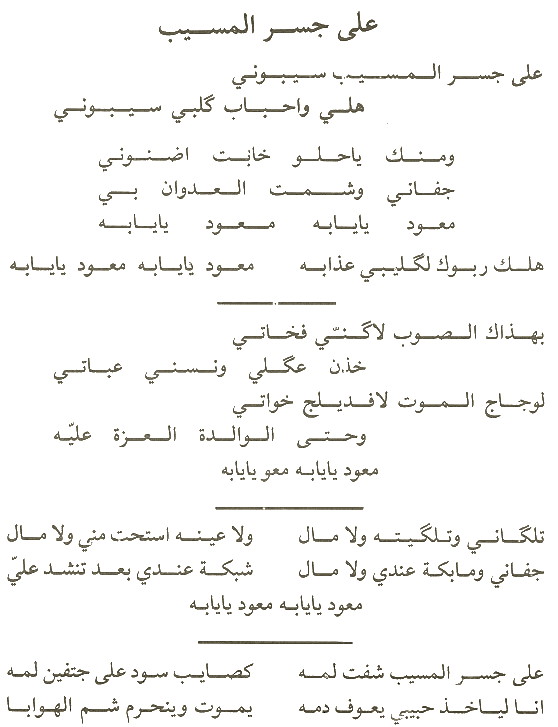 على جسر المسيب
على جسر المسيب سيبوني
هلي واحباب گلبي سيبوني
ومنك ياحلو خابت اضنوني
جفاني وشمت العدوان بي
معود يايابه معود يايابه
هلك ربوك لگليبي عذابه معود يايابه معود يايابه
بهذاك الصوب لاگنّي فخاتي
خذن عگلي ونسني عباتي
لوجاج الموت لافديلج خواتي
وحتى الوالدة العزة عليّه
معود يايابه معو يايابه
تلگاني وتلگيته ولا مال ولا عينه استحت مني ولا مال
جفاني ومابكة عندي ولا مال شبكة عندي بعد تنشد عليّ
معود يايابه معود يايابه
على جسر المسيب شفت لمه كصايب سود على جتفين لمه
انا لياخذ حبيبي يعوف دمه يموت وينحرم شم الهوابا